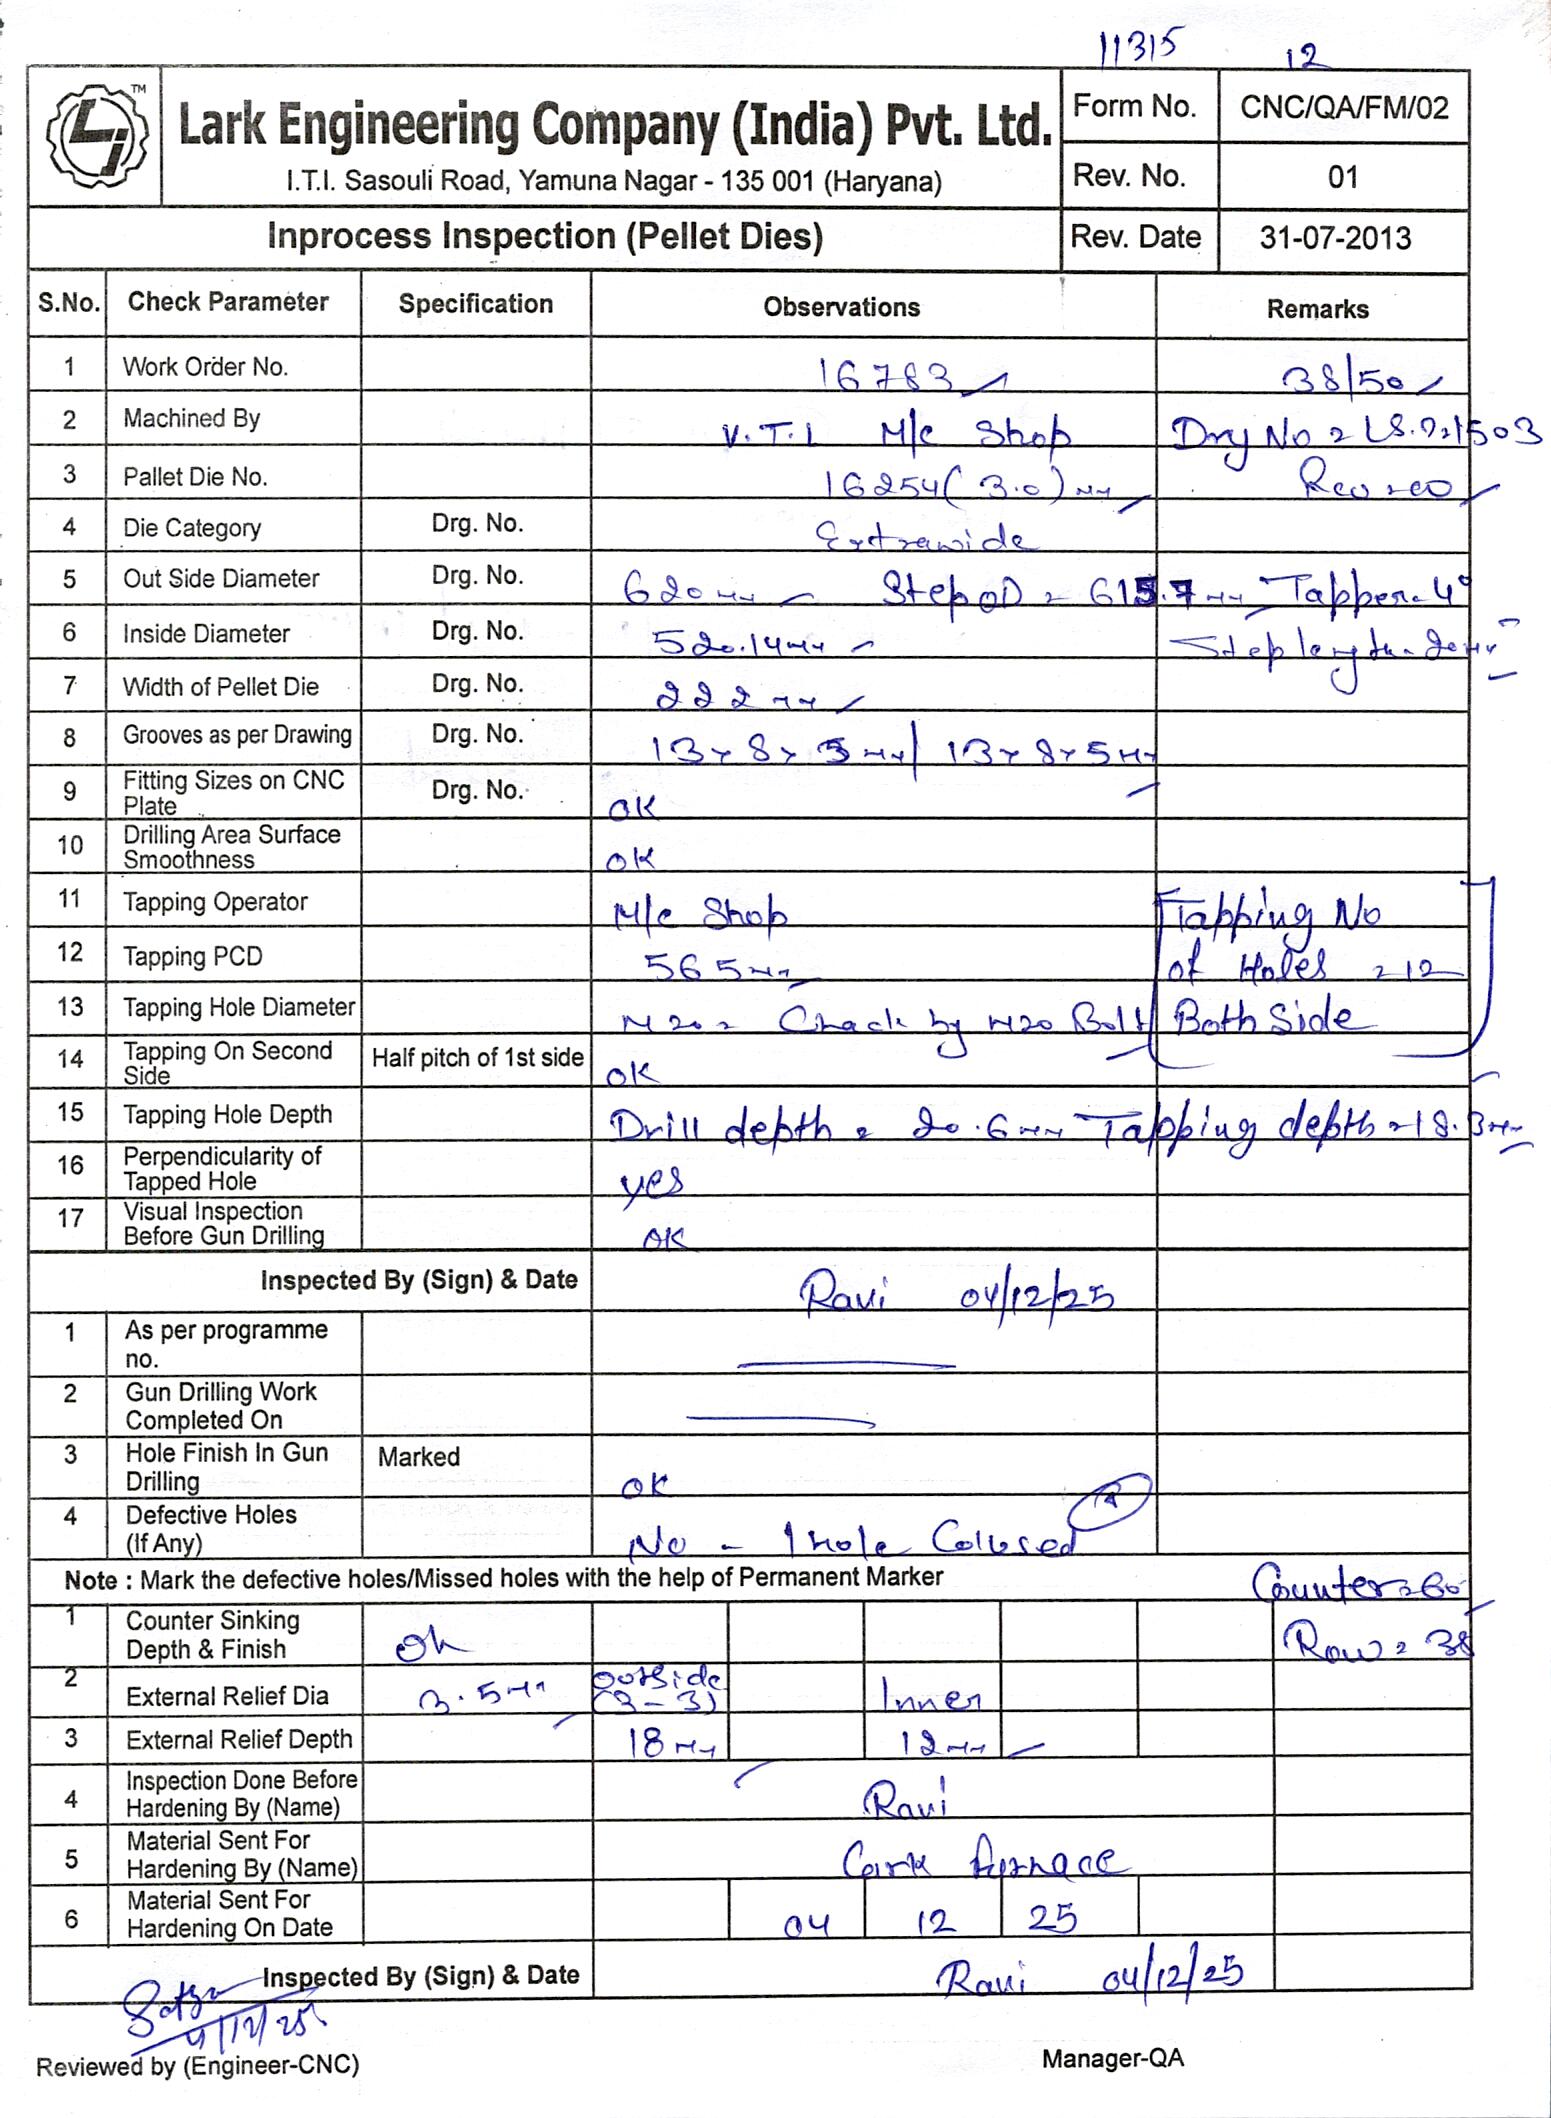 11315 12
TM
Lark Engineering Company (India) Pvt. Ltd.
I.T.I. Sasouli Road, Yamuna Nagar - 135 001 (Haryana)
Form No. CNC/QA/FM/02
Rev. No. 01
Inprocess Inspection (Pellet Dies) Rev. Date 31-07-2013
S.No. Check Parameter Specification Observations Remarks
1 Work Order No. 16783 38/50
2 Machined By V.T.L M/c Shop Drg No = LS.221503
3 Pallet Die No. 16254 (3.0) mm Rev = 00
4 Die Category Drg. No. Extrawide
5 Out Side Diameter Drg. No. 620 mm Step OD = 615.7 mm Tapper - 4°
6 Inside Diameter Drg. No. 520.14 mm Step length - 20 mm
7 Width of Pellet Die Drg. No. 222 mm
8 Grooves as per Drawing Drg. No. 13 x 8 x 5 mm / 13 x 8 x 5 mm
9 Fitting Sizes on CNC Plate Drg. No. OK
10 Drilling Area Surface Smoothness OK
11 Tapping Operator M/c Shop Tapping No
12 Tapping PCD 565 mm of Holes = 12
13 Tapping Hole Diameter M20 = Chack by M20 Bolt Both Side
14 Tapping On Second Side Half pitch of 1st side OK
15 Tapping Hole Depth Drill depth = 20.6 mm Tapping depth = 18.3 mm
16 Perpendicularity of Tapped Hole yes
17 Visual Inspection Before Gun Drilling OK
Inspected By (Sign) & Date Ravi 04/12/25
1 As per programme no.
2 Gun Drilling Work Completed On
3 Hole Finish In Gun Drilling Marked OK
4 Defective Holes (If Any) No - 1 hole Collused
Note : Mark the defective holes/Missed holes with the help of Permanent Marker Counter = 60
1 Counter Sinking Depth & Finish Ok Row = 38
2 External Relief Dia 3.5 mm Outside (3-3) Inner
3 External Relief Depth 18 mm 12 mm
4 Inspection Done Before Hardening By (Name) Ravi
5 Material Sent For Hardening By (Name) Cark furnace
6 Material Sent For Hardening On Date 04 12 25
Inspected By (Sign) & Date Ravi 04/12/25
4/12/25
Reviewed by (Engineer-CNC) Manager-QA